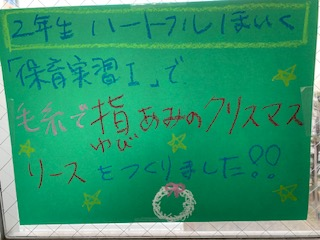 2年生 ハートフルほいく
「保育実習Ⅰ」で
毛糸で指あみのクリスマス
ゆび
リースをつくりました!!